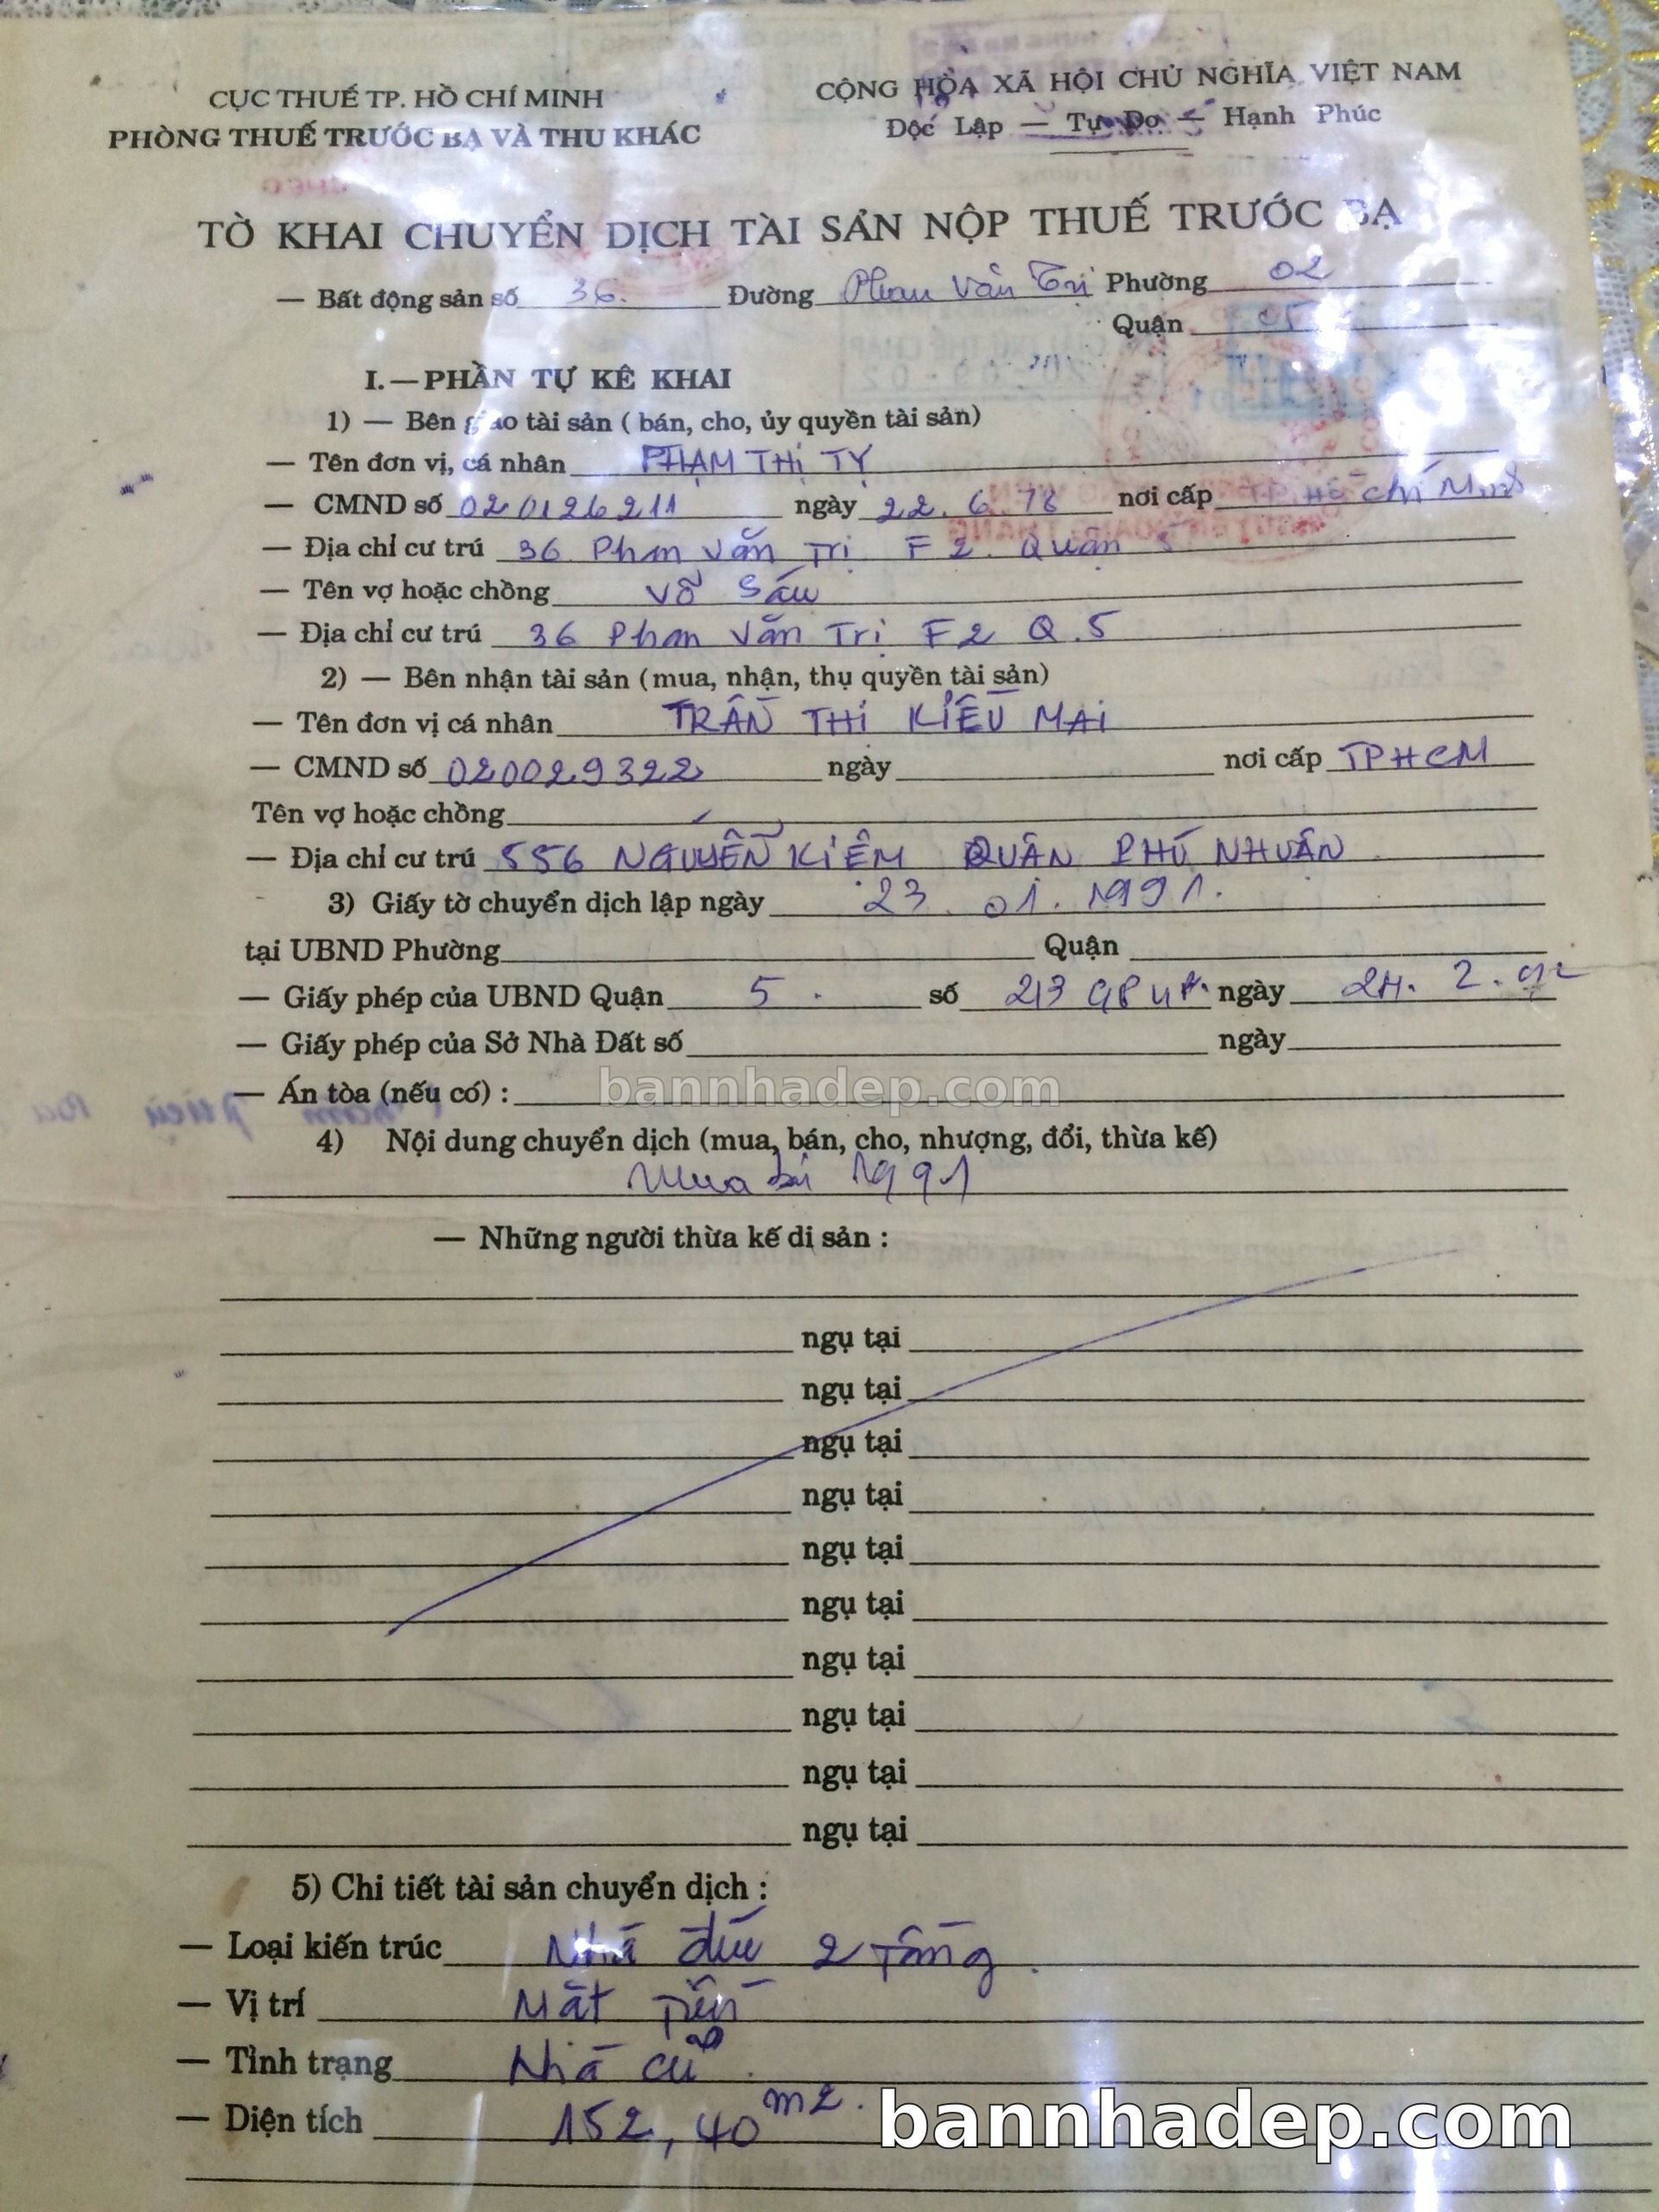 CỤC THUẾ TP. HỒ CHÍ MINH
PHÒNG THUẾ TRƯỚC BẠ VÀ THU KHÁC
CỘNG HÒA XÃ HỘI CHỦ NGHĨA VIỆT NAM
Độc Lập — Tự Do — Hạnh Phúc
TỜ KHAI CHUYỂN DỊCH TÀI SẢN NỘP THUẾ TRƯỚC BẠ
— Bất động sản số 36. Đường Phan Văn Trị Phường 02
Quận 05
I. — PHẦN TỰ KÊ KHAI
1) — Bên giao tài sản ( bán, cho, ủy quyền tài sản)
— Tên đơn vị, cá nhân PHẠM THỊ TỴ
— CMND số 020126211 ngày 22.6.78 nơi cấp TP. Hồ Chí Minh
— Địa chỉ cư trú 36 Phan Văn Trị F 2. Quận 5
— Tên vợ hoặc chồng Võ Sáu
— Địa chỉ cư trú 36 Phan Văn Trị F2 Q.5
2) — Bên nhận tài sản (mua, nhận, thụ quyền tài sản)
— Tên đơn vị cá nhân TRẦN THỊ KIỀU MAI
— CMND số 020029322 ngày nơi cấp TPHCM
Tên vợ hoặc chồng
— Địa chỉ cư trú 556 NGUYỄN KIỆM QUẬN PHÚ NHUẬN
3) Giấy tờ chuyển dịch lập ngày 23.01.1991.
tại UBND Phường Quận
— Giấy phép của UBND Quận 5. số 213 ngày 24.2.92
— Giấy phép của Sở Nhà Đất số ngày
— Án tòa (nếu có) :
bannhadep.com
4) Nội dung chuyển dịch (mua, bán, cho, nhượng, đổi, thừa kế)
Mua bán 1991
— Những người thừa kế di sản :
ngụ tại
ngụ tại
ngụ tại
ngụ tại
ngụ tại
ngụ tại
ngụ tại
ngụ tại
ngụ tại
ngụ tại
5) Chi tiết tài sản chuyển dịch :
— Loại kiến trúc Nhà đúc 2 tầng.
— Vị trí Mặt tiền
— Tình trạng Nhà cũ.
— Diện tích 152,40 m2.
bannhadep.com